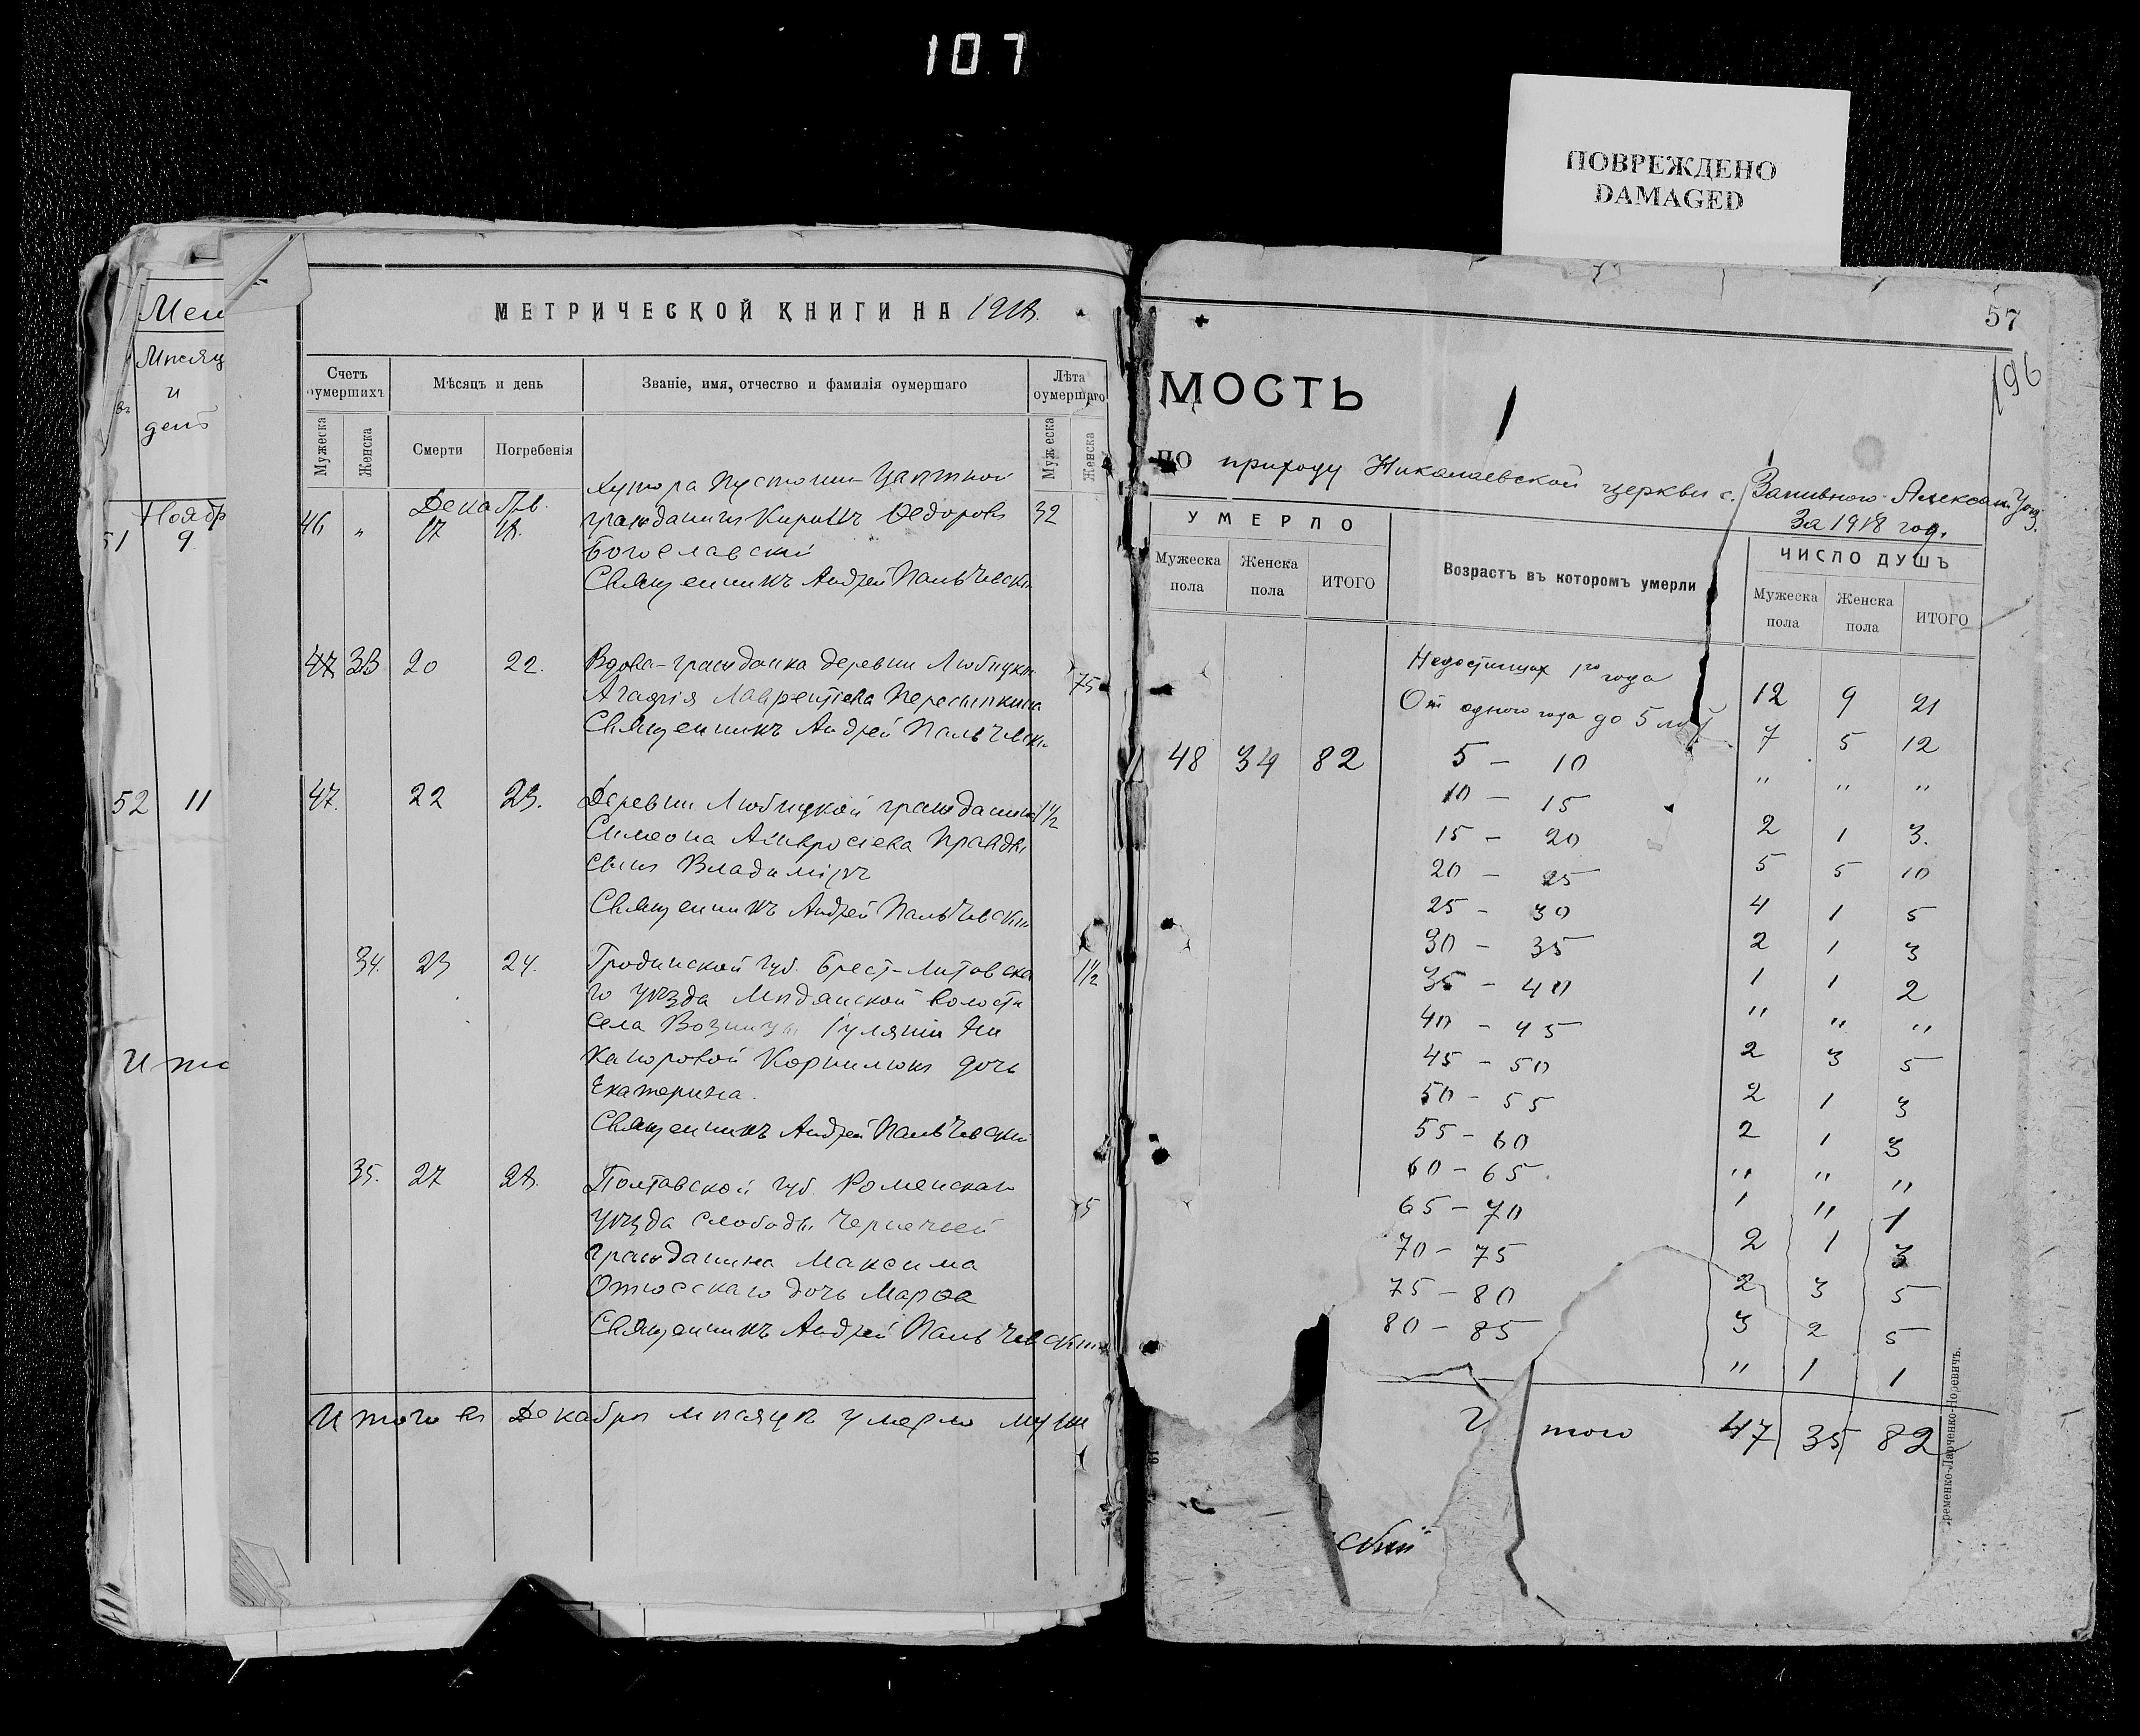 107
ПОВРЕЖДЕНО
DAMAGED
Мѣсяц
и
день
Нояб
51 9
52 11
Ито
МЕТРИЧЕСКОЙ КНИГИ НА 1918.
Счетъ оумершихъ
Мѣсяцъ и день
Званіе, имя, отчество и фамилія оумершаго
Лѣта оумершаго
Мужеска
Женска
Смерти
Погребенія
Мужеска
Женска
Декабрь.
Хутора
46 " 17 18. гражданинъ Кириллъ Ѳедоровъ 32
Богославскій
Священникъ Андрей Пальчевскій
47 33 20 22. Вдова-гражданка деревни Любицкой 75
Агафія Лаврентіева Пересыпкина
Священникъ Андрей Пальчевскій
47. 22 23. Деревни Любицкой гражданина 1½
Симеона Амвросіева Правды
сынъ Владиміръ
Священникъ Андрей Пальчевскій
34. 23 24. Гродненской губ. Брест-Литовска 1½
го уѣзда волости
села
Никаноровой Корнилюкъ дочь
Екатерина.
Священникъ Андрей Пальчевскій
35. 27 28. Полтавской губ. Роменскаго 5
уѣзда слободы
гражданина Максима
дочь Марѳа
Священникъ Андрей Пальчевскій
Итого въ Декабрѣ мѣсяцѣ умерло муж
57
196
МОСТЬ
ПО приходу Николаевской церкви с. Заливного Александ. Уѣз.
За 1918 год.
УМЕРЛО
Мужеска пола
Женска пола
ИТОГО
Возрастъ въ которомъ умерли
ЧИСЛО ДУШЪ
Мужеска пола
Женска пола
ИТОГО
48 34 82
Недостигших 1го года 12 9 21
От одного года до 5 лѣт 7 5 12
5 - 10 " " "
10 - 15 2 1 3.
15 - 20 5 5 10
20 - 25 4 1 5
25 - 30 2 1 3
30 - 35 1 1 2
35 - 40 " " "
40 - 45 2 3 5
45 - 50 2 1 3
50 - 55 2 1 3
55 - 60 " " "
60 - 65 1 " 1
65 - 70 2 1 3
70 - 75 2 3 5
75 - 80 3 2 5
80 - 85 " 1 1
Итого 47 35 82
скій
ременко-Ларченко-Норевичъ.